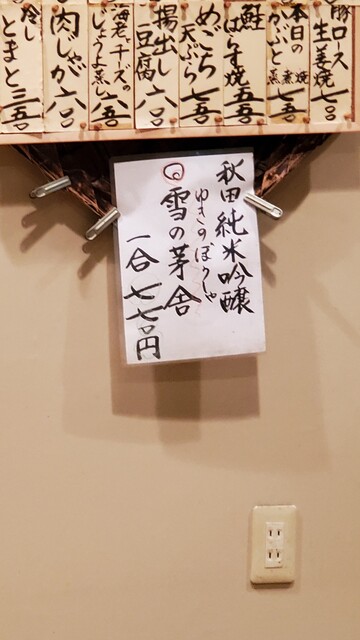 豚ロース
生姜焼
七〇
本日の
かぶと
煮 焼
七五〇
鮭
はらす焼
五五〇
めごち
天ぷら
七五〇
揚出し
豆腐
六〇〇
海老とチーズの
じょうよ蒸し
六五〇
肉じゃが
六〇〇
冷し
とまと
三五〇
秋田純米吟醸
ゆきのぼうしゃ
雪の茅舎
一合 七七〇円